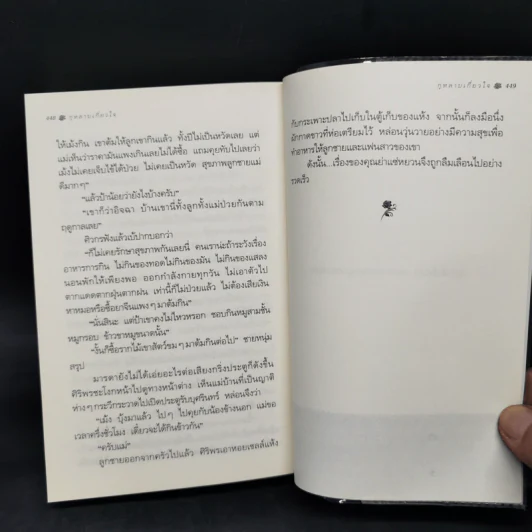 448 กุหลาบเกี่ยวใจ
ให้เม้งกิน เขาต้มให้ลูกเขากินแล้ว ทั้งปีไม่เป็นหวัดเลย แต่
แม่เห็นว่าราคามันแพงเกินเลยไม่ได้ซื้อ แถมคุยทับไปเลยว่า
เม้งไม่เคยเจ็บไข้ได้ป่วย ไม่เคยเป็นหวัด สุขภาพลูกชายแม่
ดีมากๆ”
“แล้วป้าน้อยว่ายังไงบ้างครับ”
“เขาก็ว่าอิจฉา บ้านเขานี้ทั้งลูกทั้งแม่ป่วยกันตาม
ฤดูกาลเลย”
ศิวกรฟังแล้วเบ้ปากบอกว่า
“ก็ไม่เคยรักษาสุขภาพกันเลยนี่ คนเราน่ะถ้าระวังเรื่อง
อาหารการกิน ไม่กินของทอดไม่กินของมัน ไม่กินของแสลง
นอนพักให้เพียงพอ ออกกำลังกายทุกวัน ไม่เอาตัวไป
ตากแดดตากฝุ่นตากฝน เท่านี้ก็ไม่ป่วยแล้ว ไม่ต้องเสียเงิน
หาหมอหรือซื้อยาจีนแพงๆ มาต้มกิน”
“นั่นสินะ แต่ป้าเขาคงไม่ไหวหรอก ชอบกินหมูสามชั้น
หมูกรอบ ข้าวขาหมูขนาดนั้น”
“งั้นก็ซื้อรากไม้เขาสัตว์ขมๆ มาต้มกินต่อไป” ชายหนุ่ม
สรุป
มารดายังไม่ได้เอ่ยอะไรต่อเสียงกริ่งประตูก็ดังขึ้น
ศิริพรชะโงกหน้าไปดูทางหน้าต่าง เห็นแม่บ้านที่เป็นญาติ
ห่างๆ กระวีกระวาดไปเปิดประตูรับบุศรินทร์ หล่อนจึงว่า
“เม้ง บุ้งมาแล้ว ไปๆ ไปคุยกับน้องข้างนอก แม่ขอ
เวลาครึ่งชั่วโมง เดี๋ยวจะได้กินข้าวกัน”
“ครับแม่”
ลูกชายออกจากครัวไปแล้ว ศิริพรเอาหอยเชลล์แห้ง
กุหลาบเกี่ยวใจ 449
กับกระเพาะปลาไปเก็บในตู้เก็บของแห้ง จากนั้นก็ลงมือนึ่ง
ผักกาดขาวที่ห่อเตรียมไว้ หล่อนวุ่นวายอย่างมีความสุขเพื่อ
ทำอาหารให้ลูกชายและแฟนสาวของเขา
ดังนั้น...เรื่องของคุณย่าแซ่หยวนจึงถูกลืมเลือนไปอย่าง
รวดเร็ว